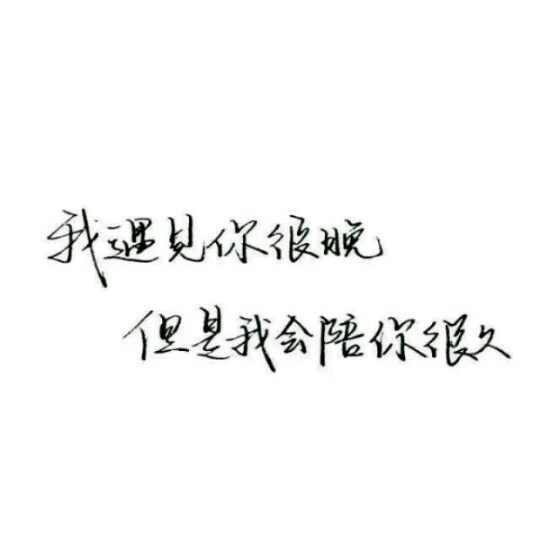 我遇見你很晚
但是我会陪你很久